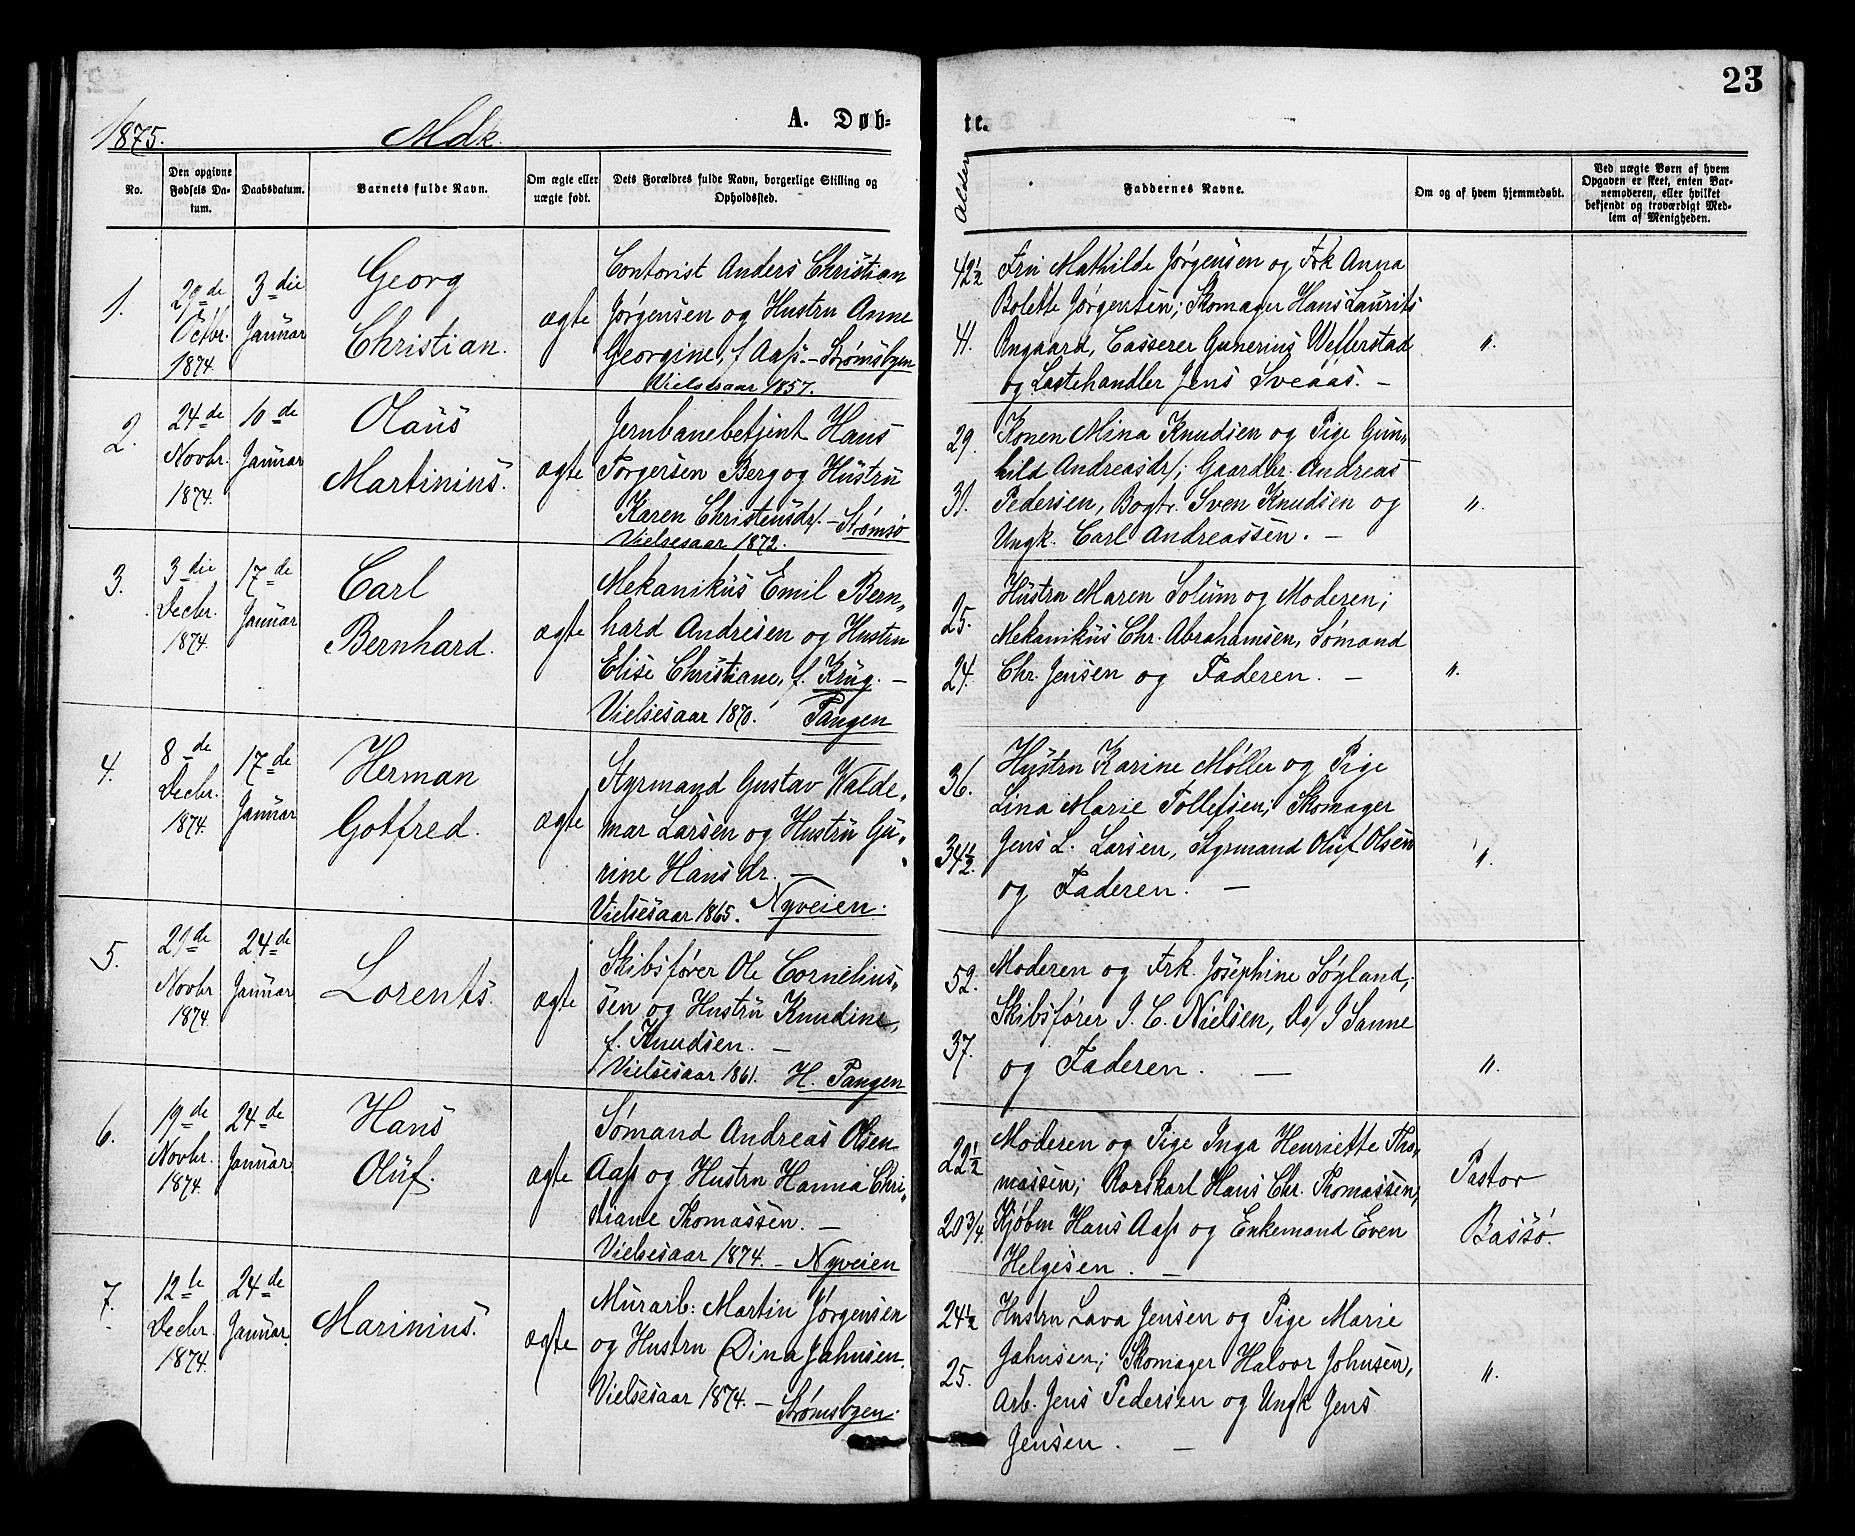 23
1875.
Mdk.
A. Døb-
te.
No.
Den opgivne Fødsels Da-tum.
Daabsdatum.
Barnets fulde Navn.
Om ægte eller uægte født.
Dets Forældres fulde Navn, borgerlige Stilling og Opholdssted.
Alderen
Faddernes Navne.
Om og af hvem hjemmedøbt.
Ved uægte Børn af hvem
Opgaven er skeet, enten Bar-
nemoderen, eller hvilket
bekjendt og troværdigt Med-
lem af Menigheden.
1.
29de Octbr. 1874.
3die Januar
Georg
Christian.
ægte
Contorist Anders Christian
Jørgensen og Hustru Anne
Georgine, f. Aass. - Strømsbyen
Vielsesaar 1857.
42½
41.
Fru Mathilde Jørgensen og Frk Anna
Bolette Jørgensen; Skomager Hans Laurits
Ringaard, Casserer Gunerius Wefferstad
og Lastehandler Jens Sveaas. -
"
2.
24de Novbr. 1874.
10de Januar
Olaus
Martinius.
ægte
Jernbanebetjent Hans
Torgersen Berg og Hustru
Karen Christensdr. - Strømsø
Vielsesaar 1872.
29.
31.
Konen Mina Knudsen og Pige Gun-
hild Andreasdr; Gaardbr. Andreas
Pedersen, Bogtr. Sven Knudsen og
Ungk. Carl Andreassen. -
"
3.
3die Decbr. 1874.
17de Januar
Carl
Bernhard.
ægte
Mekanikus Emil Bern-
hard Andresen og Hustru
Elise Christiane, f. Krüg. -
Vielsesaar 1870. Tangen
25.
24.
Hustru Maren Solum og Moderen;
Mekanikus Chr. Abrahamsen, Sømand
Chr. Jensen og Faderen. -
"
4.
8de Decbr. 1874.
17de Januar
Herman
Gotfred.
ægte
Styrmand Gustav Walde-
mar Larsen og Hustru Gu-
rine Hansdr. -
Vielsesaar 1865. Nyveien.
36.
34½.
Hustru Karine Møller og Pige
Lina Marie Tollefsen; Skomager
Jens L. Larsen, Styrmand Oluf Olsen
og Faderen. -
"
5.
21de Novbr 1874.
24de Januar
Lorents.
ægte
Skibsfører Ole Cornelius-
sen og Hustru Knudine,
f. Knudsen. -
Vielsesaar 1861. H. Tangen
52.
37.
Moderen og Frk. Josephine Søyland;
Skibsfører I. C. Nielsen, Do/ I Sanne
og Faderen. -
"
6.
19de Novbr. 1874.
24de Januar
Hans
Oluf.
ægte
Sømand Andreas Olsen
Aass og Hustru Hanna Chri-
stiane Thomassen. -
Vielsesaar 1874. - Nyveien
22½
20¾.
Moderen og Pige Inga Henriette Tho-
massen; Rorskarl Hans Chr. Thomassen,
Kjøbm Hans Aass og Enkemand Even
Helgesen. -
Pastor
Bassø.
7.
12te Decbr. 1874.
24de Januar.
Marinius.
ægte
Murarb: Martin Jørgensen
og Hustru Dina Jahnsen.
Vielsesaar 1874. - Strømsbyen.
24½
25.
Hustru Lava Jensen og Pige Marie
Jahnsen; Skomager Halvor Johnsen,
Arb. Jens Pedersen og Ungk Jens
Jensen. -
"